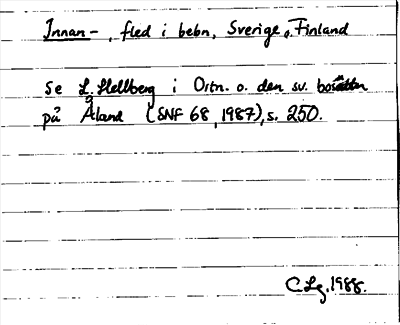 Innan-, fled i bebn, Sverige o. Finland
Se L. Hellberg i Ortn. o. den sv. bosätten
på Åland (SNF 68, 1987), s. 250.
C Lg. 1988.